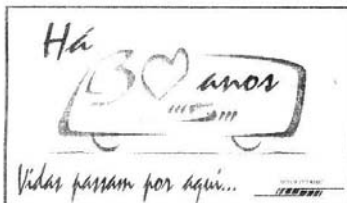 Há
30 anos
Vidas passam por aqui...